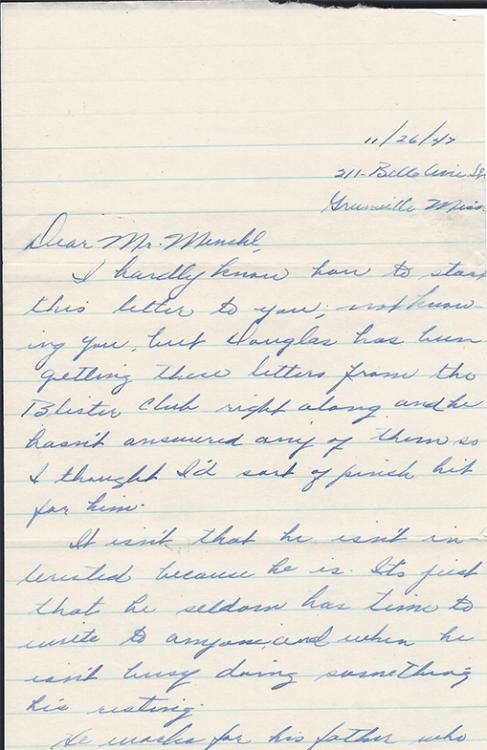 11/26/47
211- Belle Aire St.
Greenville Miss.
Dear Mr. Menchl,
I hardly know how to start
this letter to you, not know-
ing you, but Douglas has been
getting these letters from the
Blister Club right along and he
hasn't answered any of them so
I thought I'd sort of pinch hit
for him.
It isn't that he isn't in-
terested because he is. Its just
that he seldom has time to
write to anyone, and when he
isn't busy doing something
his resting.
He works for his father who